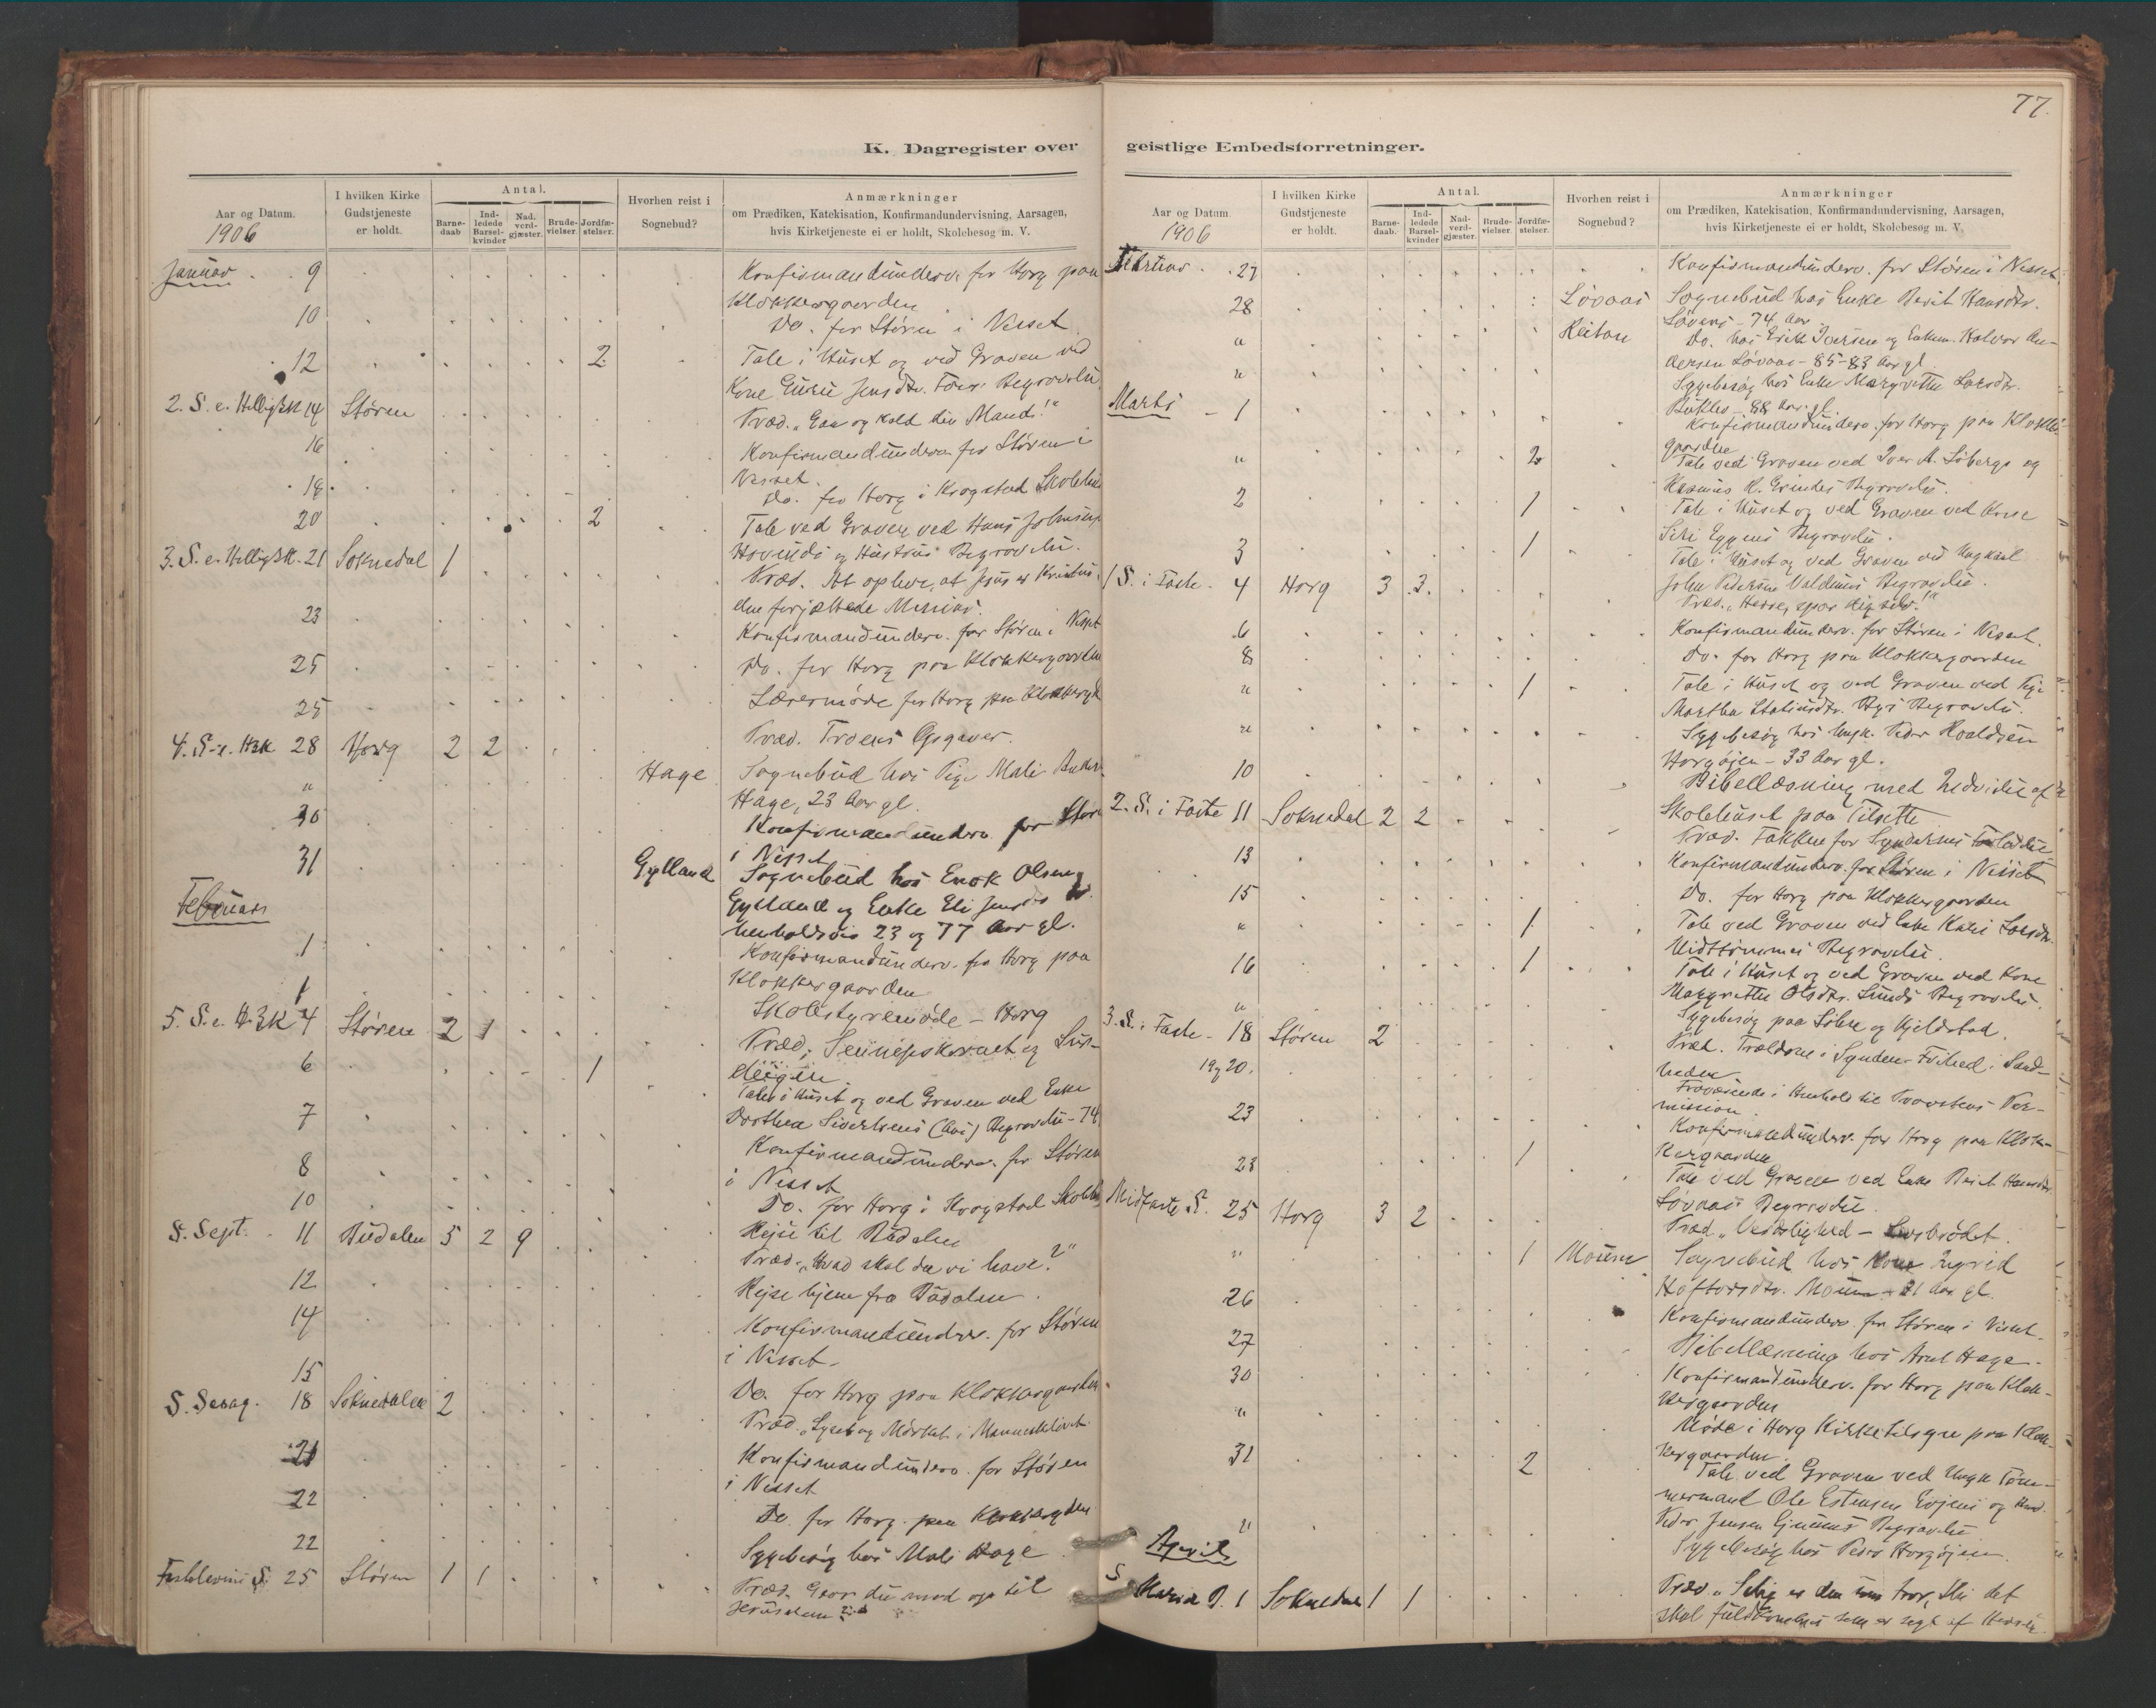 77.
K. Dagregister over
Aar og Datum.
1906
I hvilken Kirke
Gudstjeneste
er holdt.
Antal.
Barne-
daab
Ind-
ledede
Barsel-
kvinder
Nad.
verd-
gjæster.
Brude-
vielser.
Jordfæ-
stelser.
Hvorhen reist i
Sognebud?
Anmærkninger
om Prædiken, Katekisation, Konfirmandundervisning, Aarsagen,
hvis Kirketjeneste ei er holdt, Skolebesøg m. V.
Januar 9 Konfirmandunderv. for Horg paa
Klokkergaarden
10 Do. for Støren i Nesset
12 2 Tale i Huset og ved Graven ved
Kone Guru Jensdtr.
2. S. e. Helligt3k 14 Støren Præd. „Gaa og kald din Mand!"
16 Konfirmandunderv. for Støren i
Nesset.
18 Do. for Horg i Krogstad Skolehus
20 2 Tale ved Graven ved Hans Johnsen
Hovinds og Hustrus Begravelse.
3. S. e. Hellig3k. 21 Soknedal 1 Præd. At opleve, at Jesus er Kristus,
den forjættede Messias.
23 Konfirmandunderv. for Støren i Nesset
25 Do. for Horg paa Klokkergaarden
25 Lærermøde for Horg paa Klokkergd
4. S. e. H3K 28 Horg 2 2 Præd. Troens Opgaver.
" Hage Sognebud hos Pige Mali Anders
Hage, 23 Aar gl.
30 Konfirmandunderv. for Støren
i Nesset
31 Gylland Sognebud hos Enok Olsen
Gylland og Enke Eli Jensdtr
henholdsvis 23 og 77 Aar gl.
Februar
1 Konfirmandunderv. for Horg paa
Klokkergaarden
1 Skolestyremøde - Horg
5. S. e. H. 3K 4 Støren 2 1 Præd. Sennepskornet og Sur-
deigen
6 1 Tale i Huset og ved Graven ved Enke
Dorthea Sivertsens Begravelse - 74
7 Konfirmandunderv. for Støren
i Nesset
8 Do. for Horg i Krogstad Skolehus
10 Rejse til Budalen
S. Sept. 11 Budalen 5 2 9 Præd. „Hvad skal da vi have?"
12 Rejse hjem fra Budalen.
14 Konfirmandunderv. for Støren
i Nesset.
15 Do. for Horg paa Klokkergaarden
S. Sexag. 18 Soknedalen 2 Præd. „Lyset og Mørket i Menneskelivet
21 Konfirmandunderv. for Støren
i Nesset
22 Do. for Horg paa Klokkergden
22 Sygebesøg hos Mali Hage
Fastelavns S. 25 Støren 1 1 Præd. Gaar du med op til
Jerusalem?
geistlige Embedsforretninger.
Aar og Datum
1906
I hvilken Kirke
Gudstjeneste
er holdt.
Antal.
Barne-
daab.
Ind-
ledede
Barsel-
kvinder
Nad-
verd-
gjæster.
Brude-
vielser.
Jordfæ-
stelser.
Hvorhen reist i
Sognebud?
Anmærkninger
om Prædiken, Katekisation, Konfirmandundervisning, Aarsagen,
hvis Kirketjeneste ei er holdt, Skolebesøg m. V.
Februar 27 Konfirmandunderv. for Støren i Nesset.
28 Løvaas Sognebud hos Enke Berit Hansdtr.
Løvaas - 74 Aar
" Reitan Do. hos Erik Iversen og Enkem. Halvor An-
dersen Løvaas - 85-83 Aar gl.
" Sygebesøg hos Enke Margrethe Larsdtr.
88 Aar gl.
Marts 1 Konfirmandunderv. for Horg paa Klokker-
gaarden
" 2 Tale ved Graven ved Iver A. Løbergs og
Rasmus R. Grindes Begravelse.
2 1 Tale i Huset og ved Graven ved Kone
Siri Eggens Begravelse.
3 1 Tale i Huset og ved Graven ved Ungkarl
John Pedersen Valdums Begravelse.
1 S. i Faste. 4 Horg 3 3. Præd. „Herre, spar dig selv!"
6 Konfirmandunderv. for Støren i Nesset.
8 Do. for Horg paa Klokkergaarden
" 1 Tale i Huset og ved Graven ved Pige
Martha Begravelse.
" Sygebesøg hos Ungk. Peder Roaldsen
Horgøien - 33 Aar gl.
10 Bibellæsning med Indvielse af
Skolehuset paa
2. S. i Faste 11 Soknedal 2 2 Præd. Takken for Syndernes Forladelse
13 Konfirmandunderv. for Støren i Nesset
15 Do. for Horg paa Klokkergaarden
" 1 Tale ved Graven ved Enke Kari Larsdtr.
Begravelse.
16 1 Tale i Huset og ved Graven ved Kone
Margrethe Olsdtr. Lunds Begravelse.
" Sygebesøg paa Løhre og Kjeldstad.
3. S. i Faste - 18 Støren 2 Præd. Trældom i Synden - Frihed i Sand-
heden
19 og 20. Fraværende i Henhold til Provstens Per-
mission.
23 Konfirmandunderv. for Horg paa Klok-
kergaarden
23 1 Tale ved Graven ved Enke Berit Hansdtr.
Løvaas Begravelse.
Midfaste S. 25 Horg 3 2 Præd. - Livsbrødet.
" 1 Mouen Sognebud hos Kone Ingrid
Moen - 81 Aar gl.
26 Konfirmandunderv. for Støren i Nesset.
27 Bibellæsning hos Arnt Hage.
30 Konfirmandunderv. for Horg paa Klok-
kergaarden
" Møde i Horg Kirketilsyn paa Klok-
kergaarden.
31 2 Tale ved Graven ved Ungk Tøm-
mermand Ole Estensen Evjens og
Peder Jensen Begravelse
" Sygebesøg hos Peder Horgøien.
April
S Maria B. 1 Soknedal 1 1 Præd. „Salig er den som tror, thi det
skal fuldkommes som er sagt af Herren.